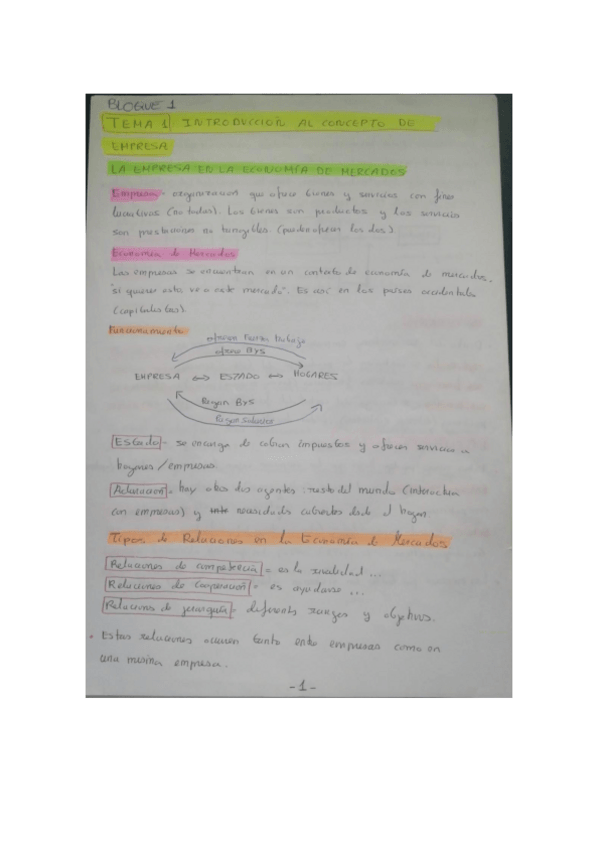 BLOQUE 1
TEMA 1 INTRODUCCIÓN AL CONCEPTO DE
EMPRESA
LA EMPRESA EN LA ECONOMÍA DE MERCADOS
Empresa = organización que ofrece bienes y servicios con fines
lucrativos (no todas). Los bienes son productos y los servicios
son prestaciones no tangibles (pueden ofrecer los dos)
Economía de Mercados
Las empresas se encuentran en un contexto de economía de mercados,
"si quieres esto ve a este mercado". Es así en los países occidentales
(capitalistas).
Funcionamiento
ofrecen fuerza trabajo
ofrece BYS
EMPRESA ↔ ESTADO ↔ HOGARES
Pagan BYS
Pagan salarios
Estado = se encarga de cobrar impuestos y ofrecer servicios a
hogares/empresas.
Aclaración = hay otros dos agentes: resto del mundo (interactúa
con empresas) y necesidades cubiertas desde el hogar.
Tipos de Relaciones en la Economía de Mercados
Relaciones de competencia = es la rivalidad ...
Relaciones de Cooperación = es ayudarse ...
Relaciones de jerarquía = diferentes rangos y objetivos.
• Estas relaciones ocurren tanto entre empresas como en
una misma empresa.
- 1 -